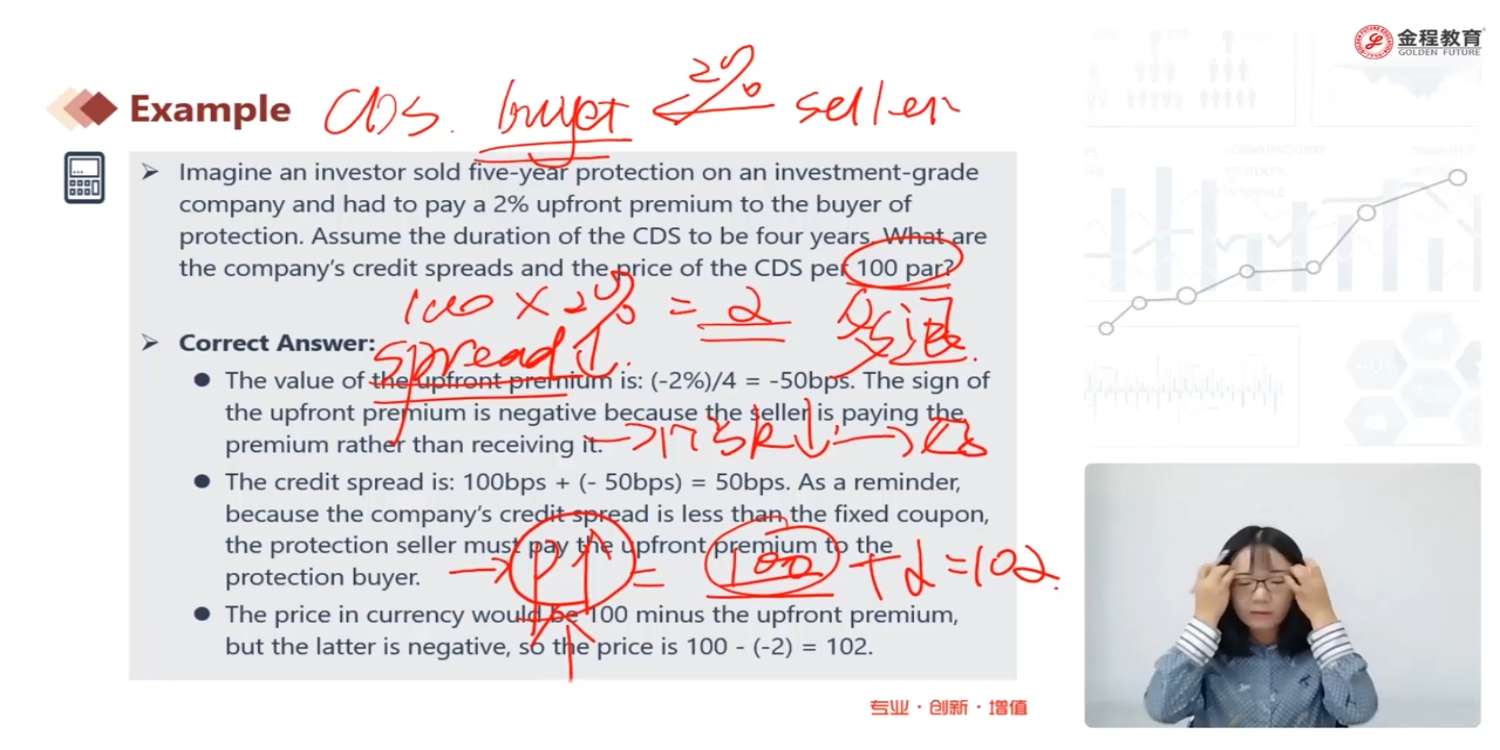 金程教育
GOLDEN FUTURE
Example
CDS. buyer 2% seller
Imagine an investor sold five-year protection on an investment-grade
company and had to pay a 2% upfront premium to the buyer of
protection. Assume the duration of the CDS to be four years. What are
the company's credit spreads and the price of the CDS per 100 par?
100 × 2% = 2 多退.
Correct Answer:
spread↓.
The value of the upfront premium is: (-2%)/4 = -50bps. The sign of
the upfront premium is negative because the seller is paying the
premium rather than receiving it.
→ risk↓. →
The credit spread is: 100bps + (- 50bps) = 50bps. As a reminder,
because the company's credit spread is less than the fixed coupon,
the protection seller must pay the upfront premium to the
protection buyer.
→ P↑ = 100 + 2 = 102.
The price in currency would be 100 minus the upfront premium,
but the latter is negative, so the price is 100 - (-2) = 102.
专业·创新·增值